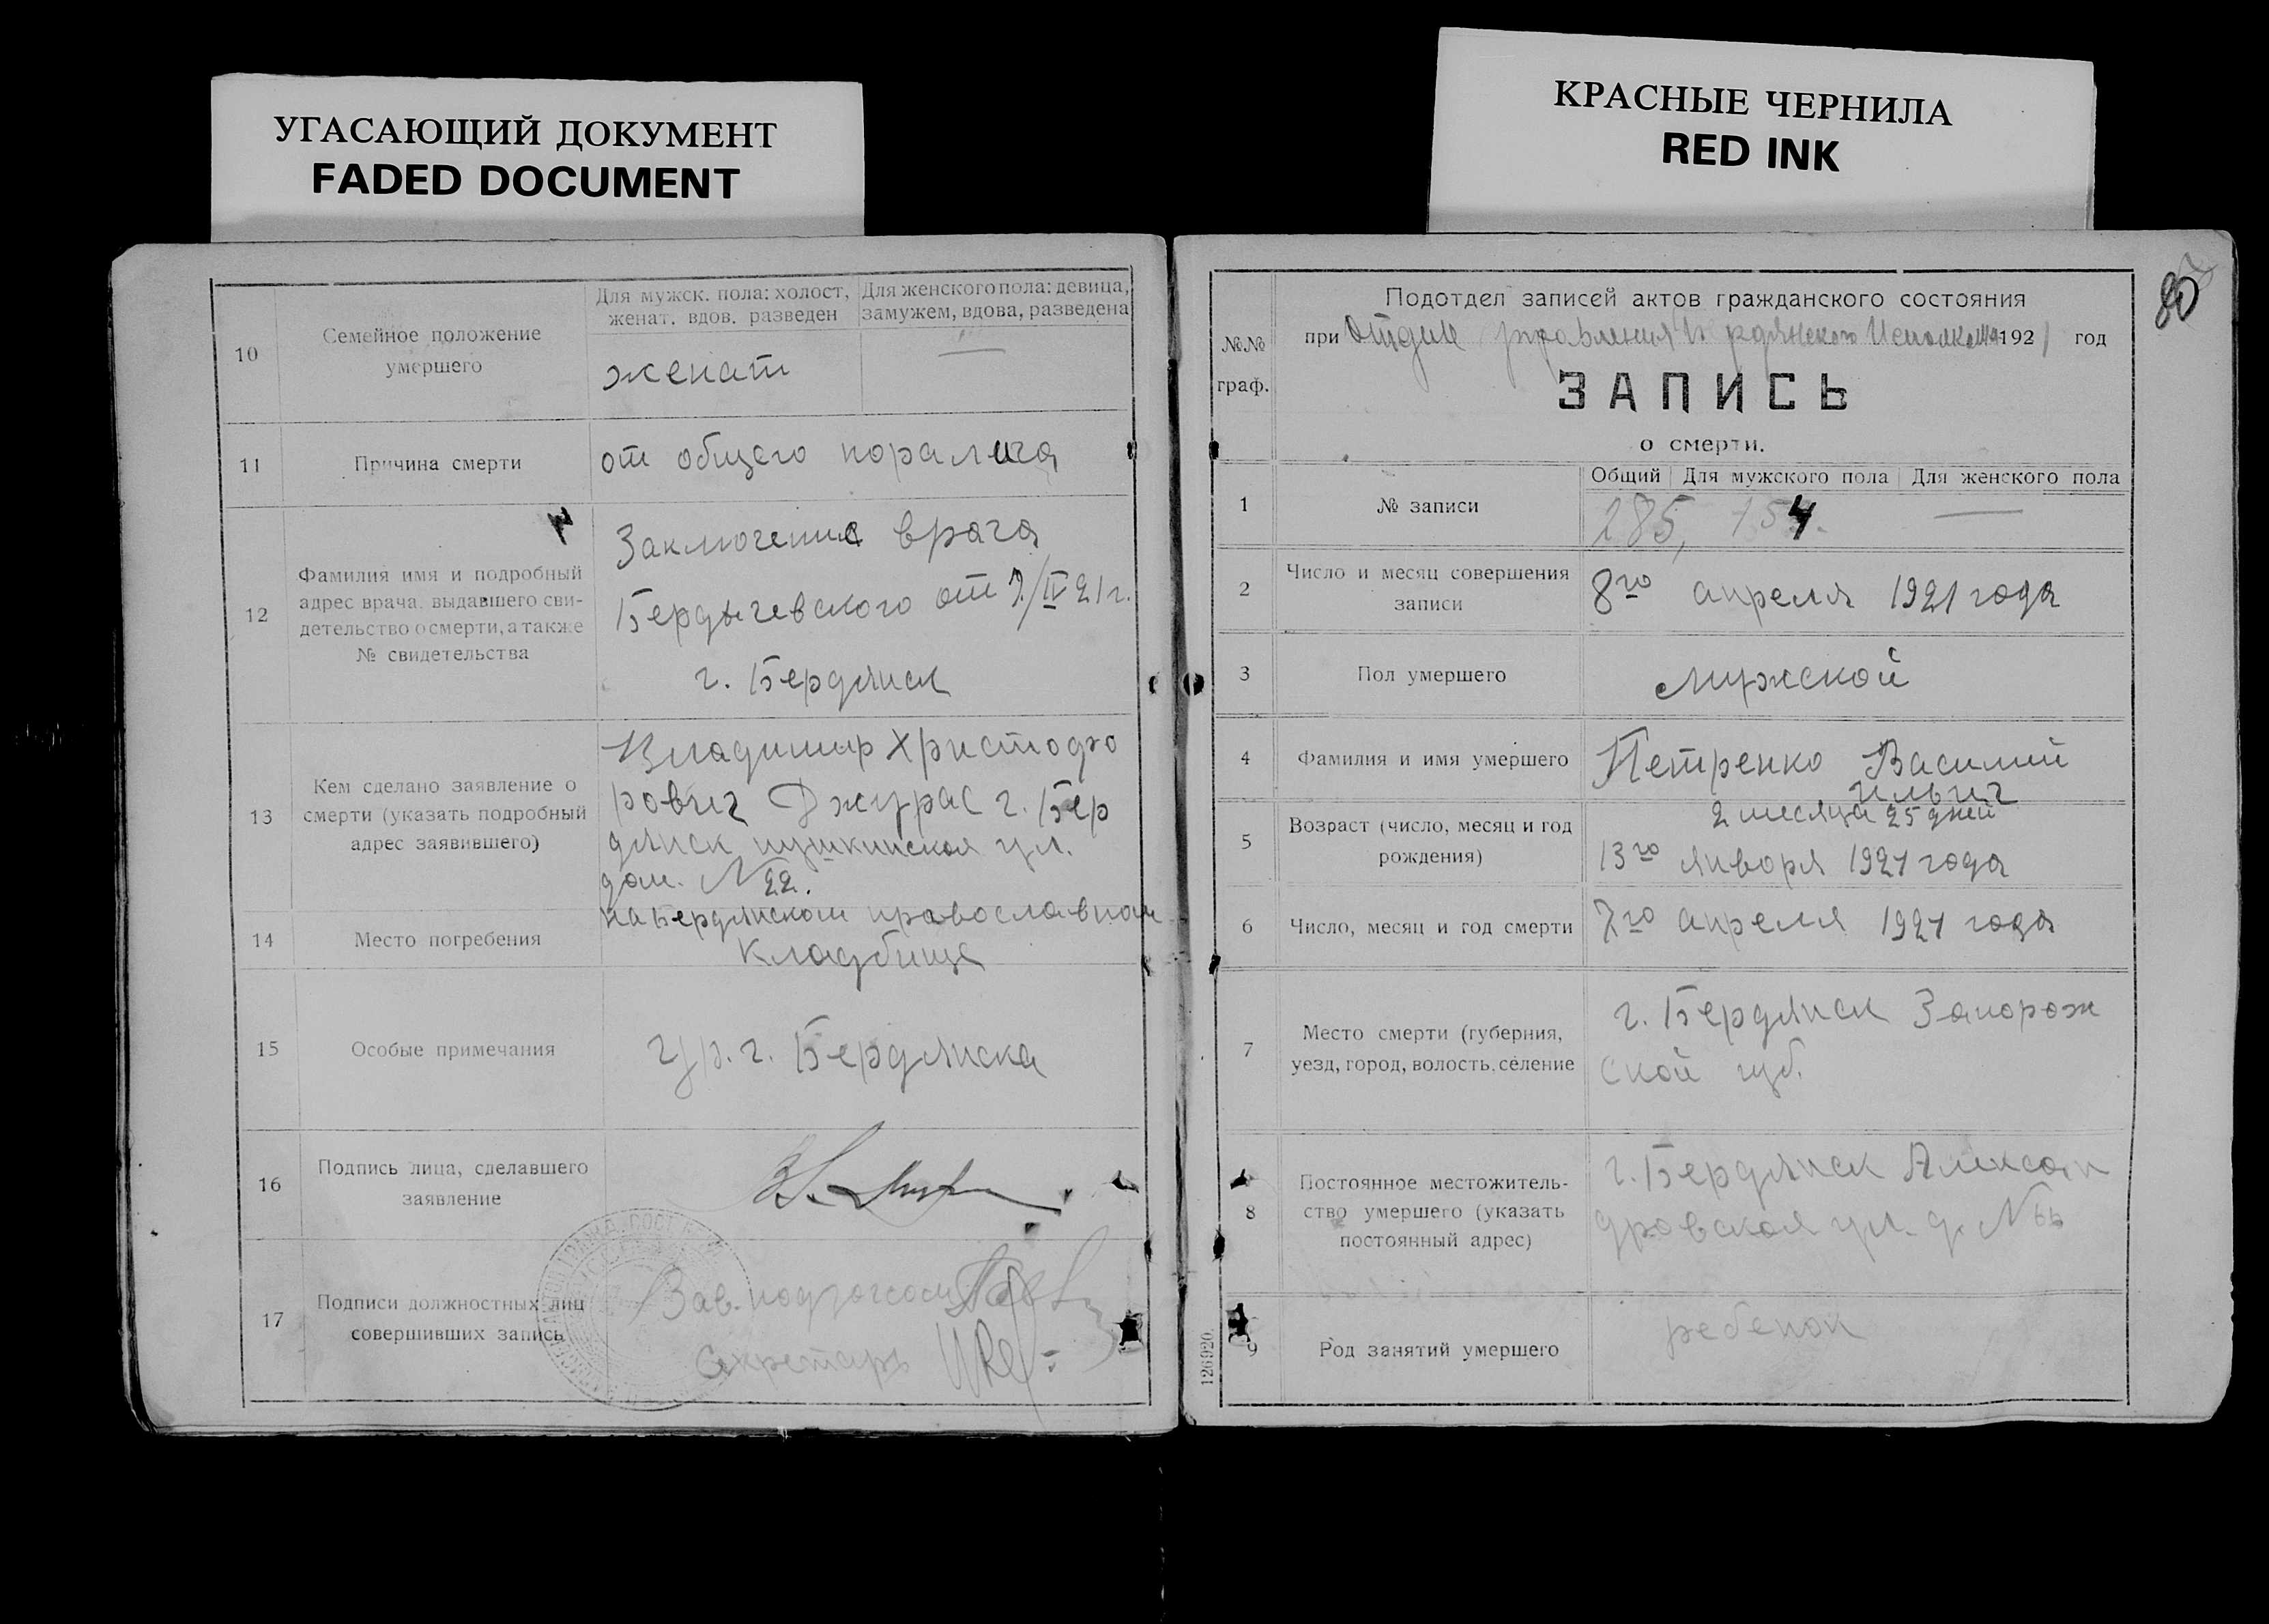 УГАСАЮЩИЙ ДОКУМЕНТ
FADED DOCUMENT
КРАСНЫЕ ЧЕРНИЛА
RED INK
10
Семейное положение
умершего
Для мужск. пола: холост,
женат, вдов, разведен
Для женского пола: девица,
замужем, вдова, разведена
женат
—
11
Причина смерти
от общего паралича
12
Фамилия имя и подробный
адрес врача, выдавшего сви-
детельство о смерти, а также
№ свидетельства
Заключение врача
Бердычевского от 7/IV 21 г.
г. Бердянск
13
Кем сделано заявление о
смерти (указать подробный
адрес заявившего)
Владимир Христофо
рович Джурас г. Бер
дянск пушкинская ул.
дом. N 22.
14
Место погребения
на Бердянском православном
кладбище
15
Особые примечания
гр. г. Бердянска
16
Подпись лица, сделавшего
заявление
17
Подписи должностных лиц
совершивших запись
Зав.
Секретарь
80
№№
граф.
Подотдел записей актов гражданского состояния
при Отделе Управления Исполкома 1921 год
ЗАПИСЬ
о смерти.
1
№ записи
Общий Для мужского пола Для женского пола
285, 154. —
2
Число и месяц совершения
записи
8го апреля 1921 года
3
Пол умершего
мужской
4
Фамилия и имя умершего
Петренко Василий
Ильич
5
Возраст (число, месяц и год
рождения)
2 месяца 25 дней
13го января 1921 года
6
Число, месяц и год смерти
7го апреля 1921 года
7
Место смерти (губерния,
уезд, город, волость, селение
г. Бердянск Запорож
ской губ.
8
Постоянное местожитель-
ство умершего (указать
постоянный адрес)
г. Бердянск Алексан
дровская ул. д. N 66
9
Род занятий умершего
ребенок
126920.